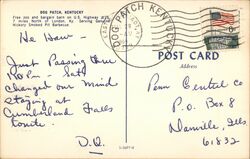 DOG PATCH, KENTUCKY
Fine Joe and bargain barn on U.S. Highway
7 miles North of London, Ky. Serving Genuine
Hickory Smoked Pit Barbecue
DOG PATCH KENTUCKY
POST CARD
Address
He Haw -
Just Passing thru
Satt
changed our mind
staying at
Cumberland Falls
tonite.
D.Q.
Penn Central Co
P.O. Box 8
Danville, Ills
61832